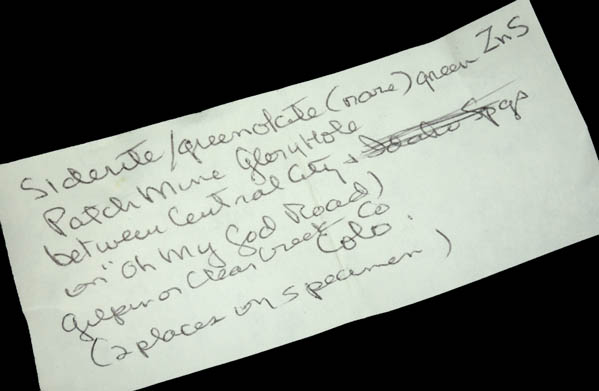 Siderite/greenokite (rare) green ZnS
Patch Mine Glory Hole
between Central City + Idaho Spgs
on "Oh My God Road)
Gilpin or Clear Creek Co
Colo.
(2 places on specimen)